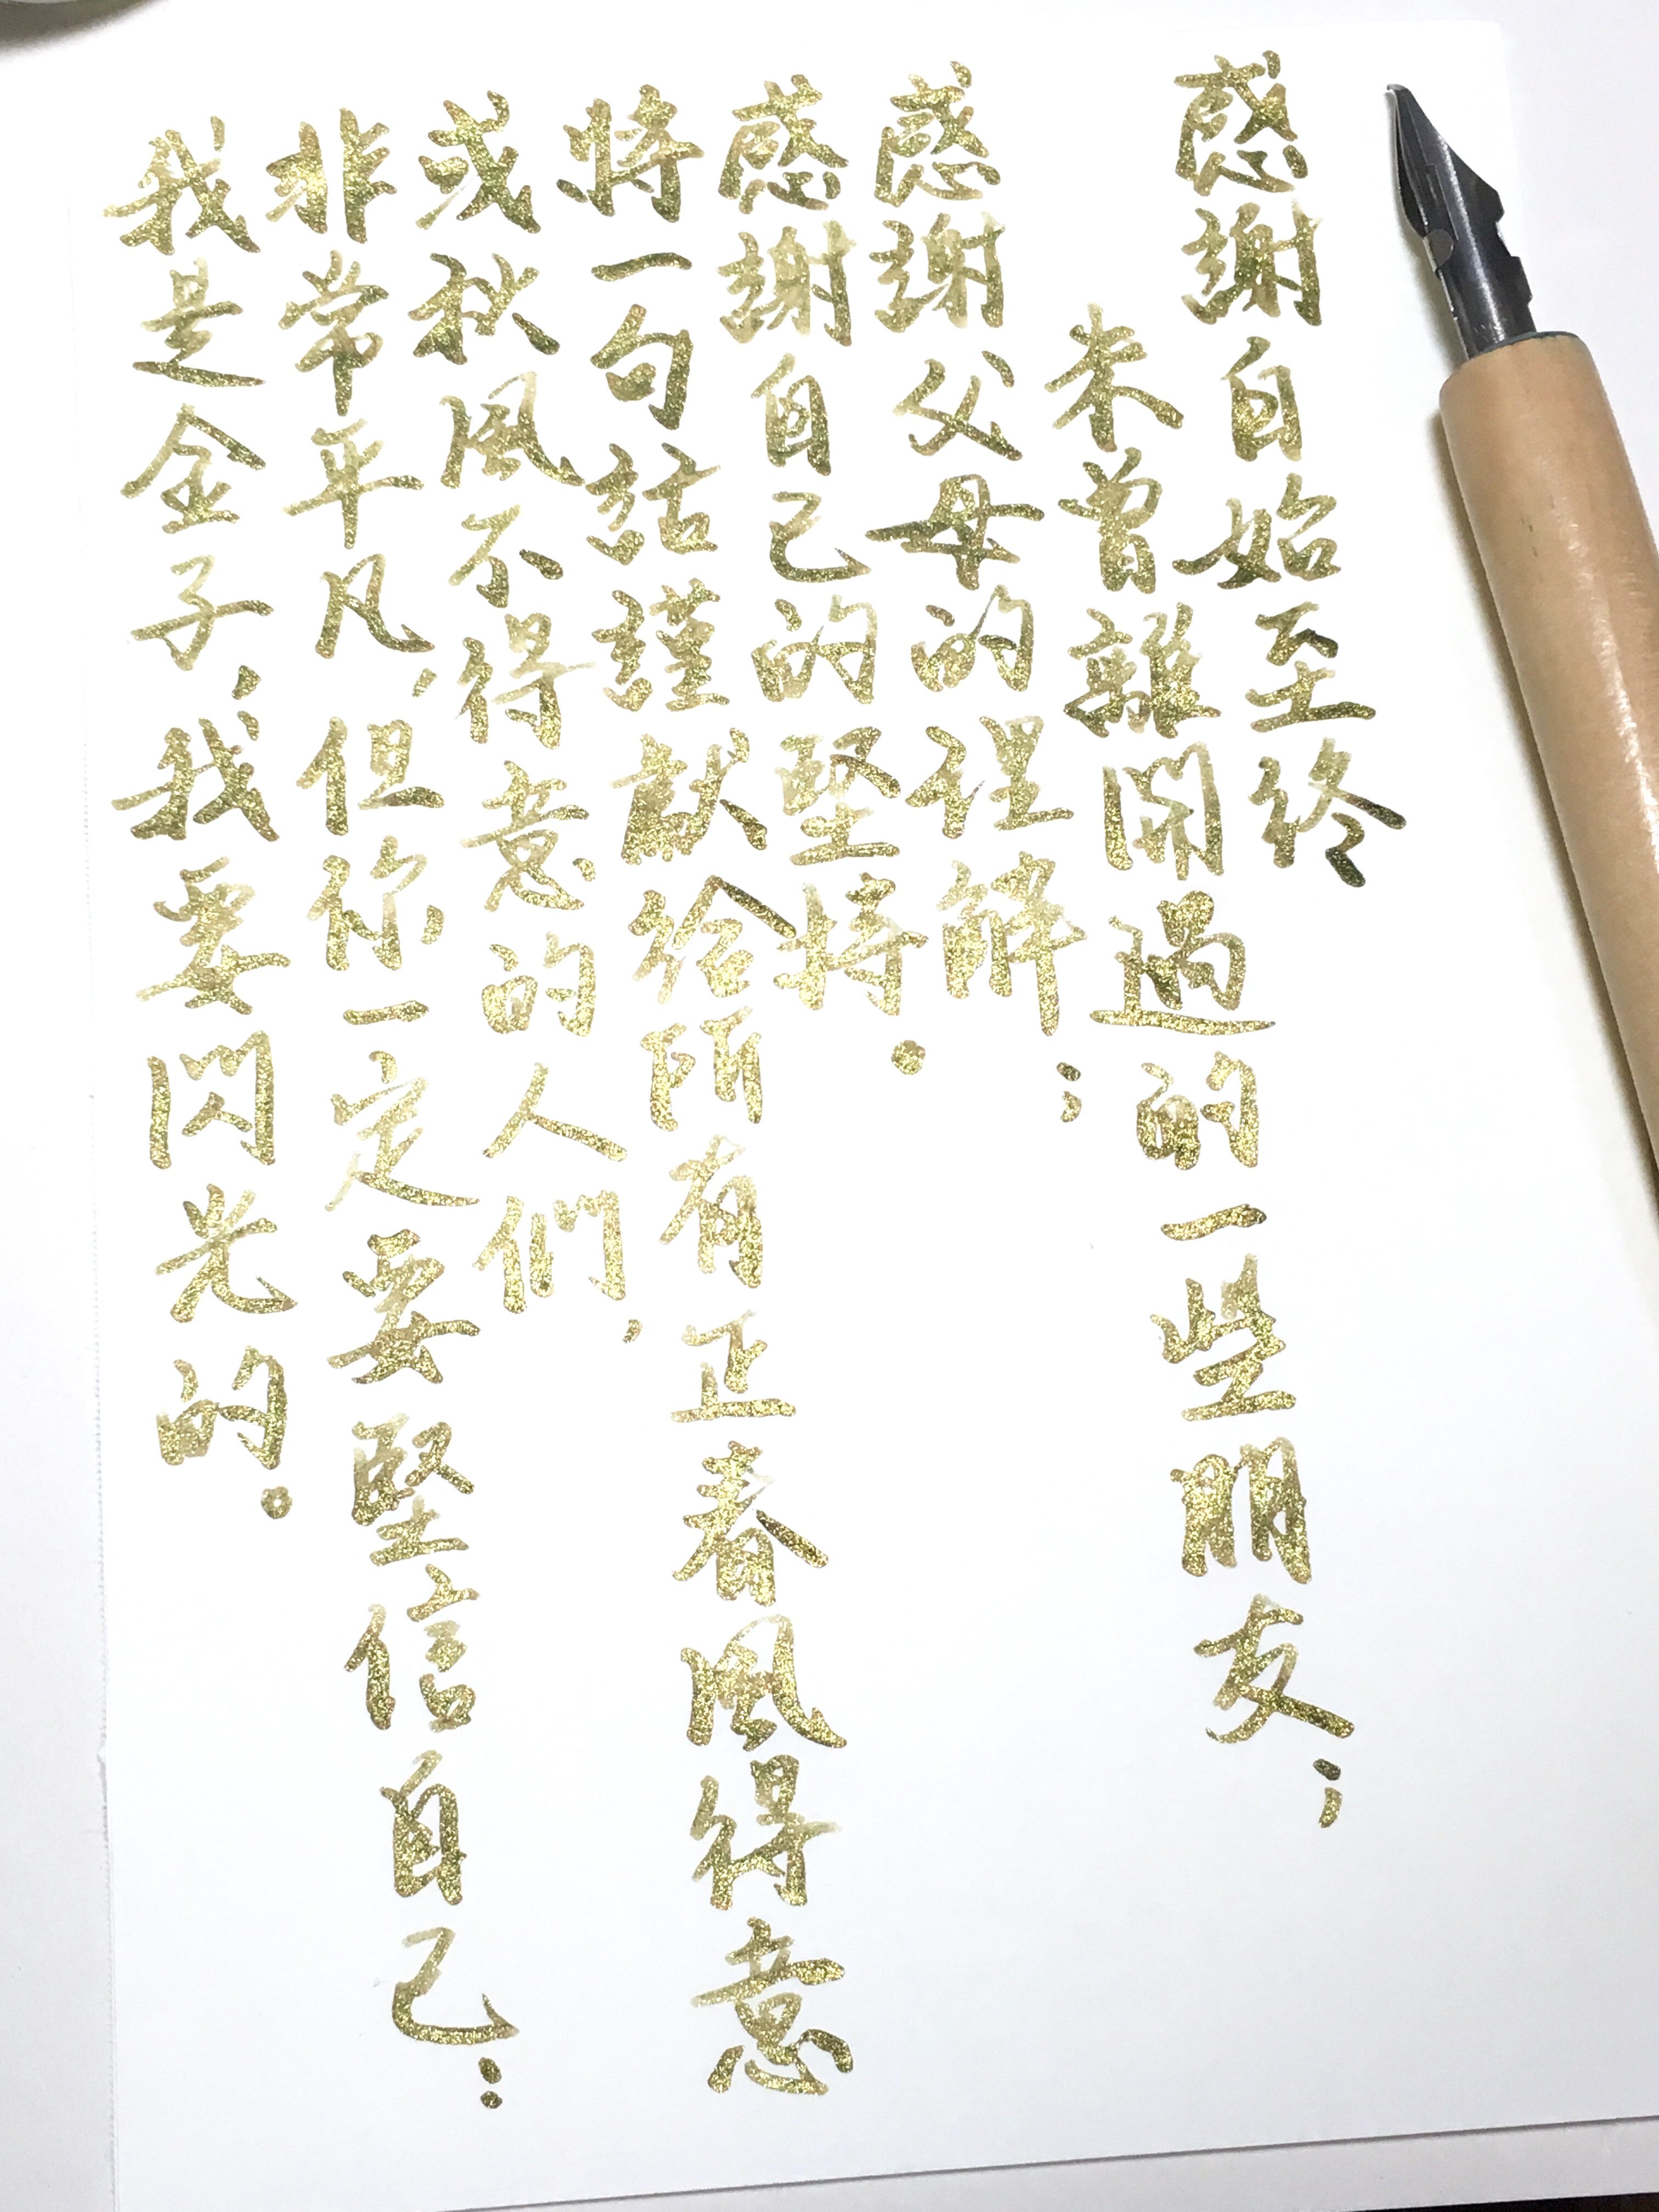 感謝自始至終
未曾離開過的一些朋友；
感謝父母的理解；
感謝自己的堅持。
將一句話謹獻給所有正春風得意
或秋風不得意的人們，
非常平凡，但你一定要堅信自己：
我是金子，我要閃光的。